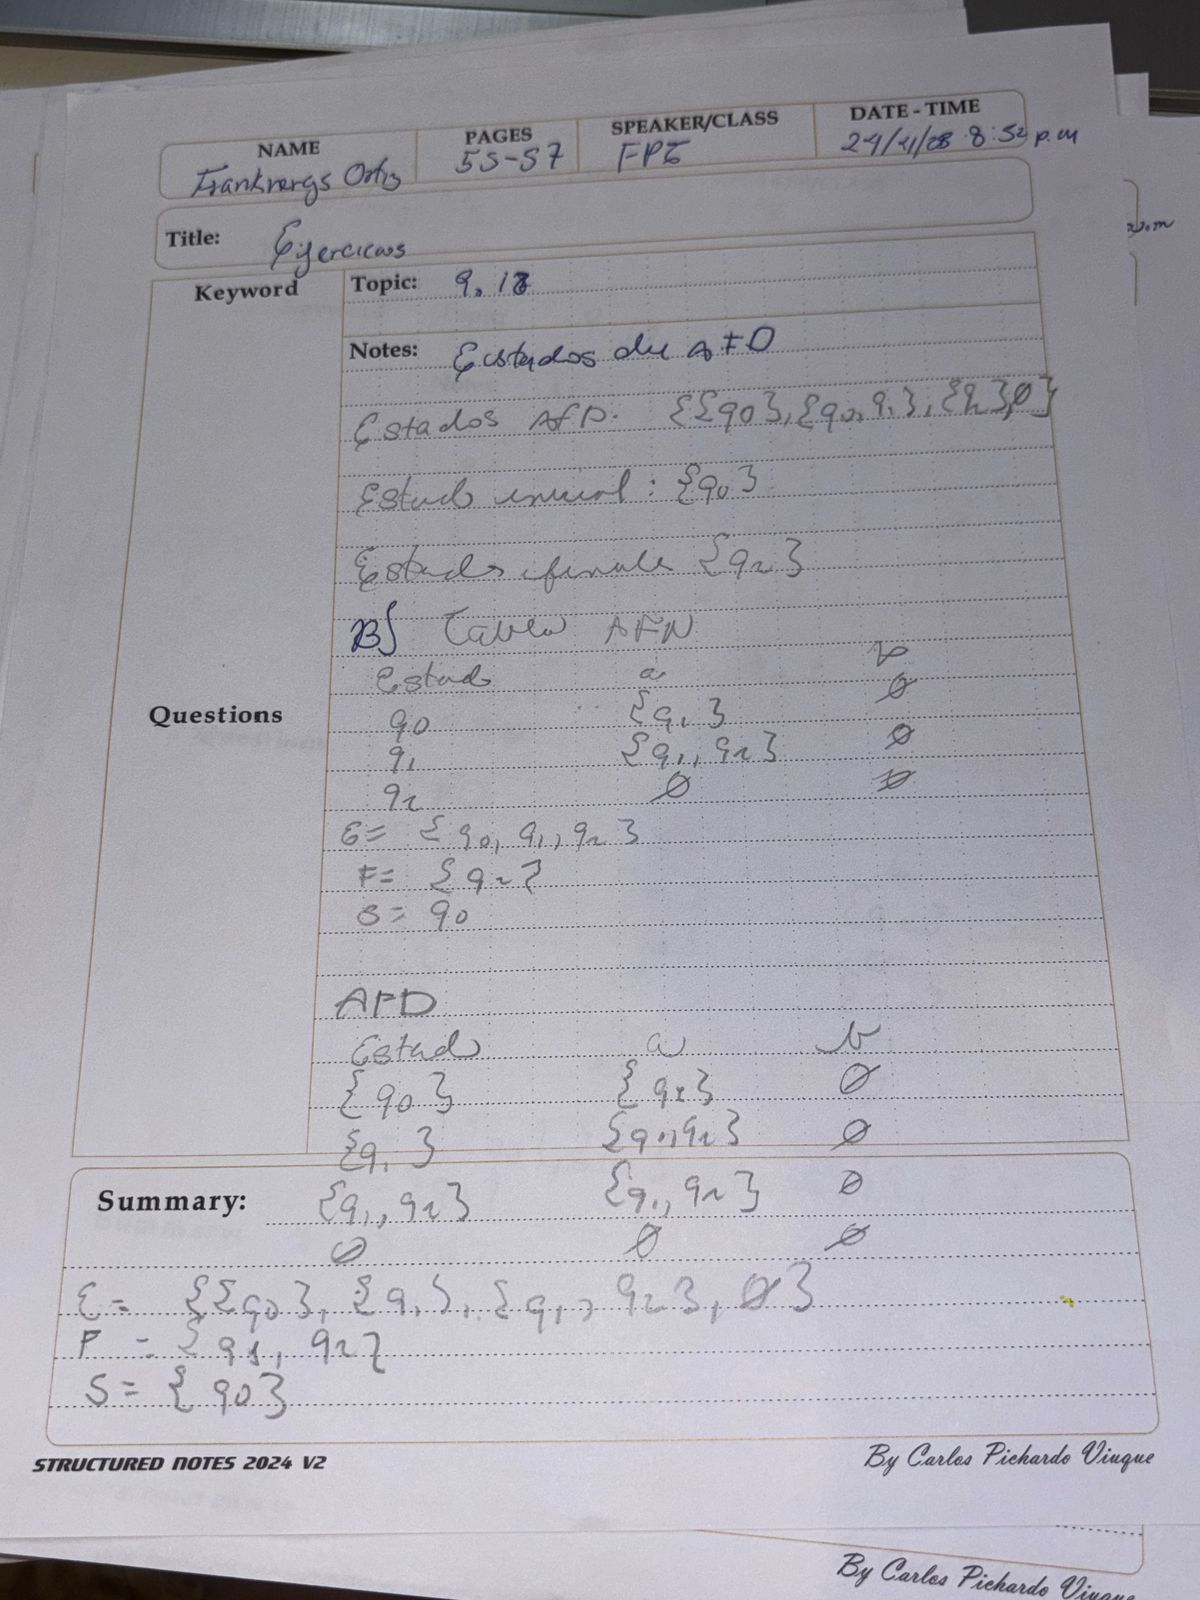 NAME PAGES SPEAKER/CLASS DATE - TIME
Ortiz 55-57 8:52 p.m
Title: Ejercicios
Keyword Topic: 9.18
Notes: Estados du AFD
Estados AFD. {{q0},{q0,q1},{q2},∅}
Estado inicial: {q0}
Estados finale {q2}
B) Tabla AFN
Estado a b
q0 {q1} ∅
Questions
q1 {q1, q2} ∅
q2 ∅ ∅
E= {q0, q1, q2}
F= {q2}
S= q0
AFD
Estado a b
{q0} {q1} ∅
{q1} {q1,q2} ∅
Summary: {q1, q2} {q1, q2} ∅
∅ ∅ ∅
E= {{q0}, {q1}, {q1, q2}, ∅}
F = {q1, q2}
S= {q0}
STRUCTURED NOTES 2024 V2 By Carlos Pichardo Viuque
By Carlos Pichardo Viuque